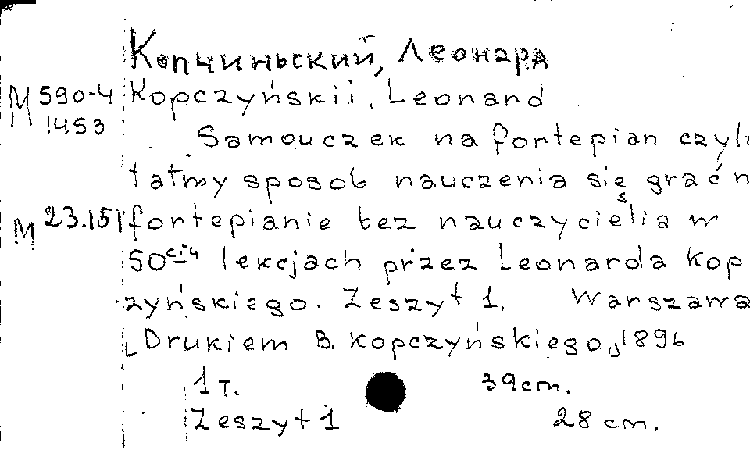 Копчиньский, Леонард
М 590-4 Kopczyńskii, Leonard
1453
Samouczek na fortepian czyli
łatwy sposób nauczenia się grać n
М 23.151 fortepianie bez nauczyciela w
50ciu lekcjach przez Leonarda Kop
zyńskiego. Zeszyt 1. Warszawa
[Drukiem B. Kopczyńskiego,] 1896
1 т. 39cm.
Zeszyt 1 28 cm.